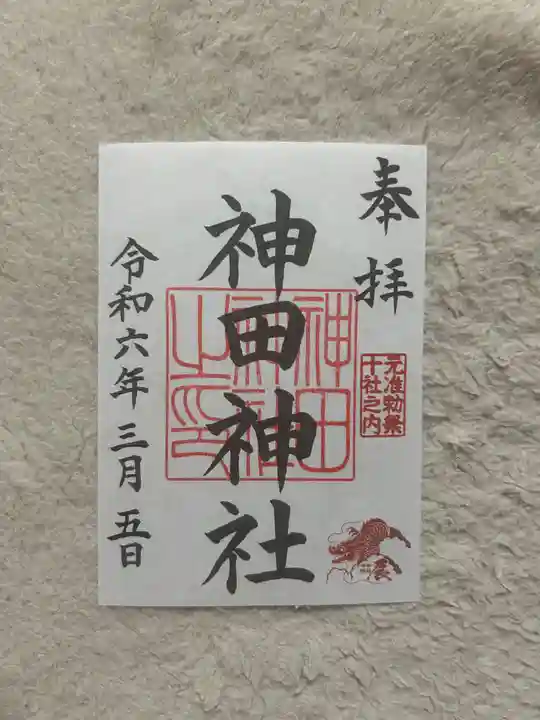 奉拝
元准勅祭
十社之内
神田神社
神田
神社
之印
令和六年三月五日